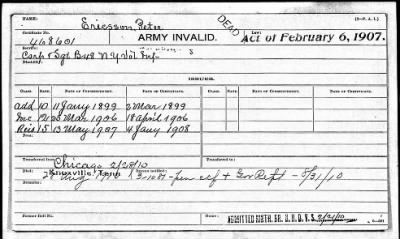 (3—P. A. I.)
Ericsson, Peter
DEAD
Certificate No.
468601
ARMY INVALID.
Act of February 6, 1907.
Service:
Corp & Sgt B, 48 N Y Vol Inf
Disability:
ISSUES.
CLASS. RATE. DATE OF COMMENCEMENT. DATE OF CERTIFICATE. CLASS. RATE. DATE OF COMMENCEMENT. DATE OF CERTIFICATE.
Add 10 11 Jany 1899 2 Mar 1899
Inc 12 28 Mar 1906 18 April 1906
Reis 15 13 May 1907 4 Jany 1908
Transferred from
Chicago 2/28/10
Transferred to
Knoxville Tenn
Died:
Former Roll No.
ADMITTED